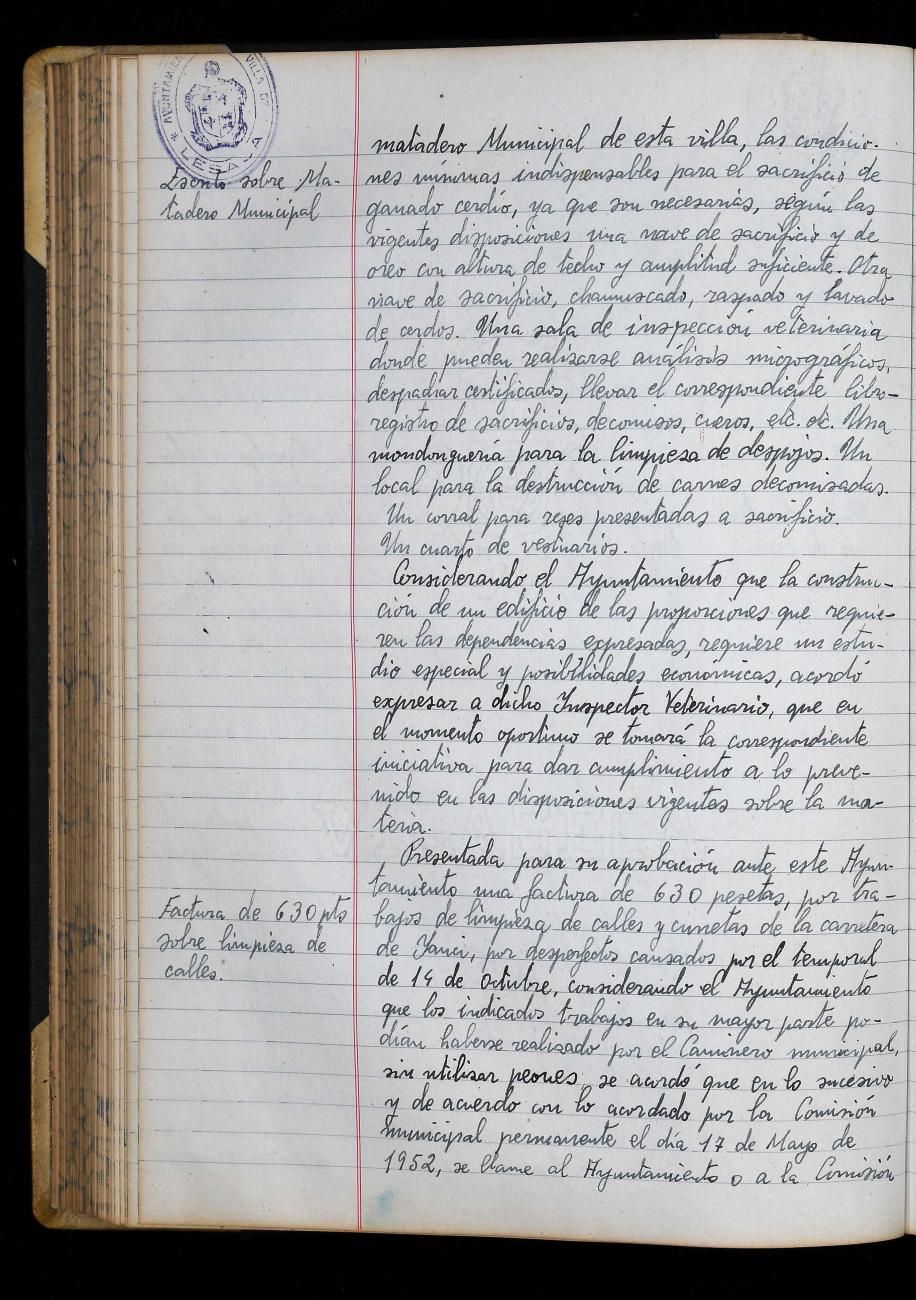 AYUNTAMIENTO VILLA DE
* LESACA
Escrito sobre Ma-
tadero Municipal
matadero Municipal de esta villa, las condicio-
nes mínimas indispensables para el sacrificio de
ganado cerdío, ya que son necesarias, según las
vigentes disposiciones una nave de sacrificio y de
oreo con altura de techo y amplitud suficiente. Otra
nave de sacrificio, chamuscado, raspado y lavado
de cerdos. Una sala de inspección veterinaria
donde pueden realizarse análisis micrográficos,
despachar certificados, llevar el correspondiente libro-
registro de sacrificios, decomisos, cueros, etc. etc. Una
mondonguería para la limpiesa de despojos. Un
local para la destrucción de carnes decomisadas.
Un corral para reses presentadas a sacrificio.
Un cuarto de vestuarios.
Considerando el Ayuntamiento que la construc-
ción de un edificio de las proporciones que requie-
ren las dependencias expresadas, requiere un estu-
dio especial y posibilidades económicas, acordó
expresar a dicho Inspector Veterinario, que en
el momento oportuno se tomará la correspondiente
iniciativa para dar cumplimiento a lo preve-
nido en las disposiciones vigentes sobre la ma-
teria.
Factura de 630 pts
sobre limpiesa de
calles.
Presentada para su aprobación ante este Ayun-
tamiento una factura de 630 pesetas, por tra-
bajos de limpiesa de calles y cunetas de la carretera
de Yanci, por desperfectos causados por el temporal
de 14 de Octubre, considerando el Ayuntamiento
que los indicados trabajos en su mayor parte po-
dían haberse realizado por el Caminero municipal,
sin utilisar peones, se acordó que en lo sucesivo
y de acuerdo con lo acordado por la Comisión
municipal permanente el día 17 de Mayo de
1952, se llame al Ayuntamiento o a la Comisión